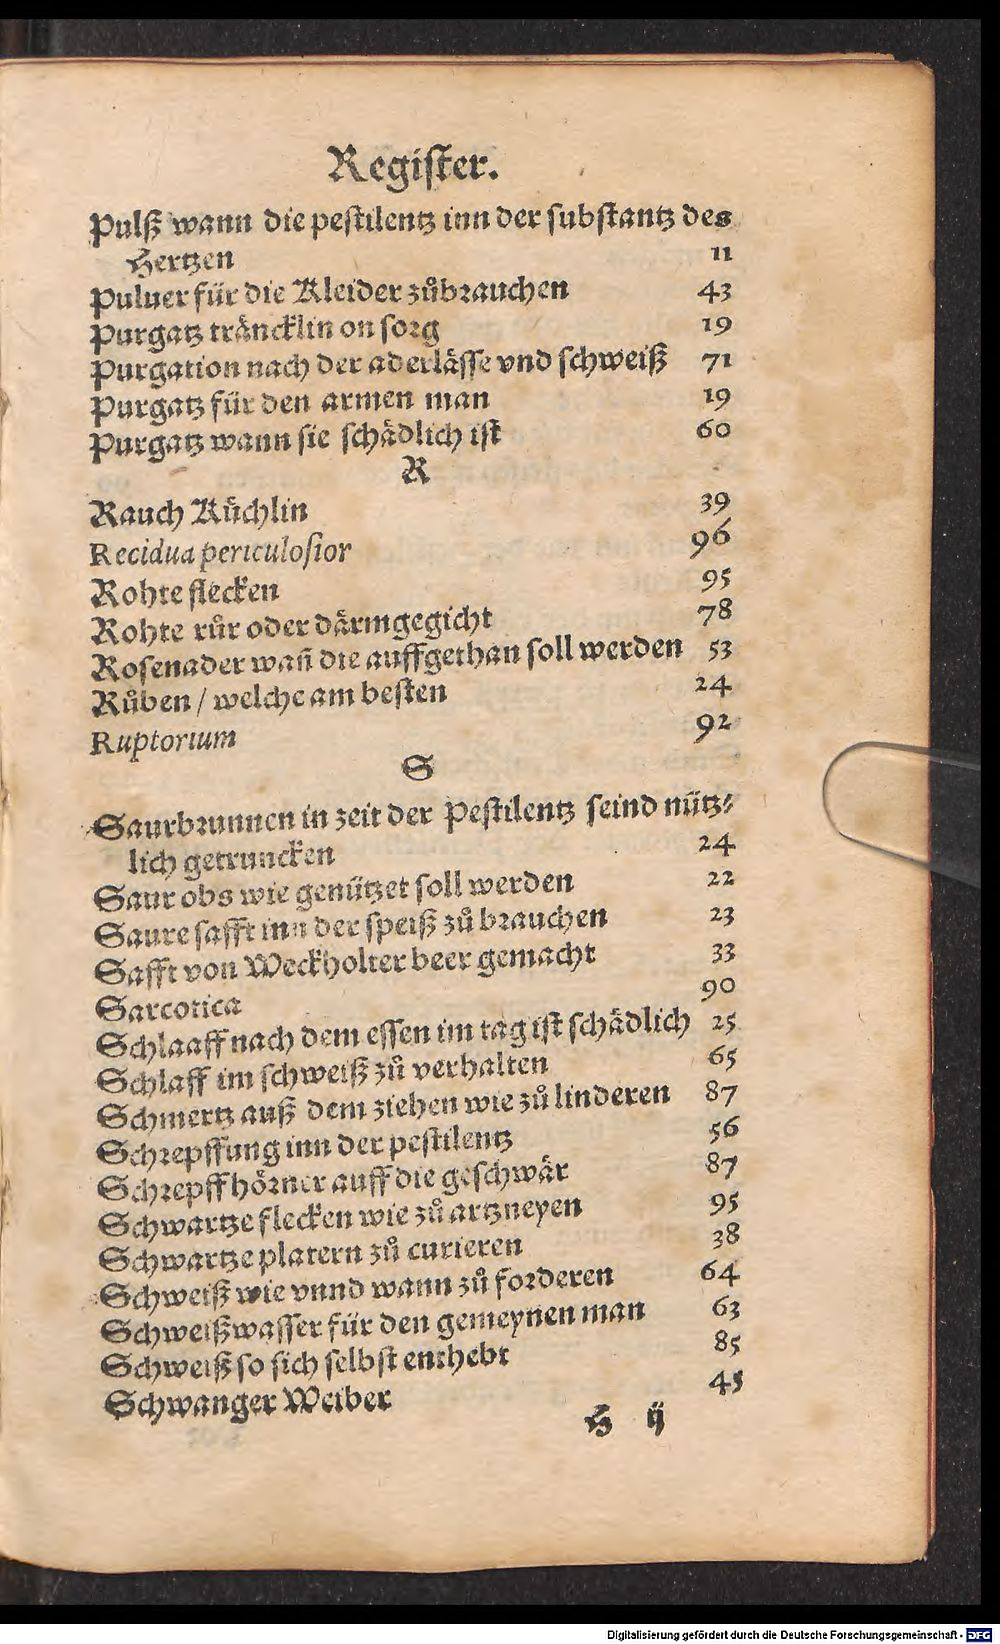 Regiſter.
Pulß wann die peſtilentz inn der ſubſtantz des
Hertzen 11
Puluer für die Kleider zůbrauchen 43
Purgatz träncklin on ſorg 19
Purgation nach der aderläſſe vnd ſchweiß 71
Purgatz für den armen man 19
Purgatz wann ſie ſchädlich iſt 60
R
Rauch Küchlin 39
Recidua periculoſior 96
Rohte flecken 95
Rohte růr oder därmgegicht 78
Roſenader wañ die auffgethan ſoll werden 53
Růben / welche am beſten 24
Ruptorium 92
S
Saurbrunnen in zeit der Peſtilentz ſeind nütz⸗
lich getruncken 24
Saur obs wie genützet ſoll werden 22
Saure ſafft inn der ſpeiß zů brauchen 23
Safft von Weckholter beer gemacht 33
Sarcotica 90
Schlaaff nach dem eſſen im tag iſt ſchädlich 25
Schlaff im ſchweiß zů verhalten 65
Schmertz auß dem ziehen wie zů linderen 87
Schrepffung inn der peſtilentz 56
Schrepffhörner auff die geſchwär 87
Schwartze flecken wie zů artzneyen 95
Schwartze platern zů curieren 38
Schweiß wie vnnd wann zů forderen 64
Schweißwaſſer für den gemeynen man 63
Schweiß ſo ſich ſelbſt enthebt 85
Schwanger Weiber 45
H ij
Digitalisierung gefördert durch die Deutsche Forschungsgemeinschaft - DFG